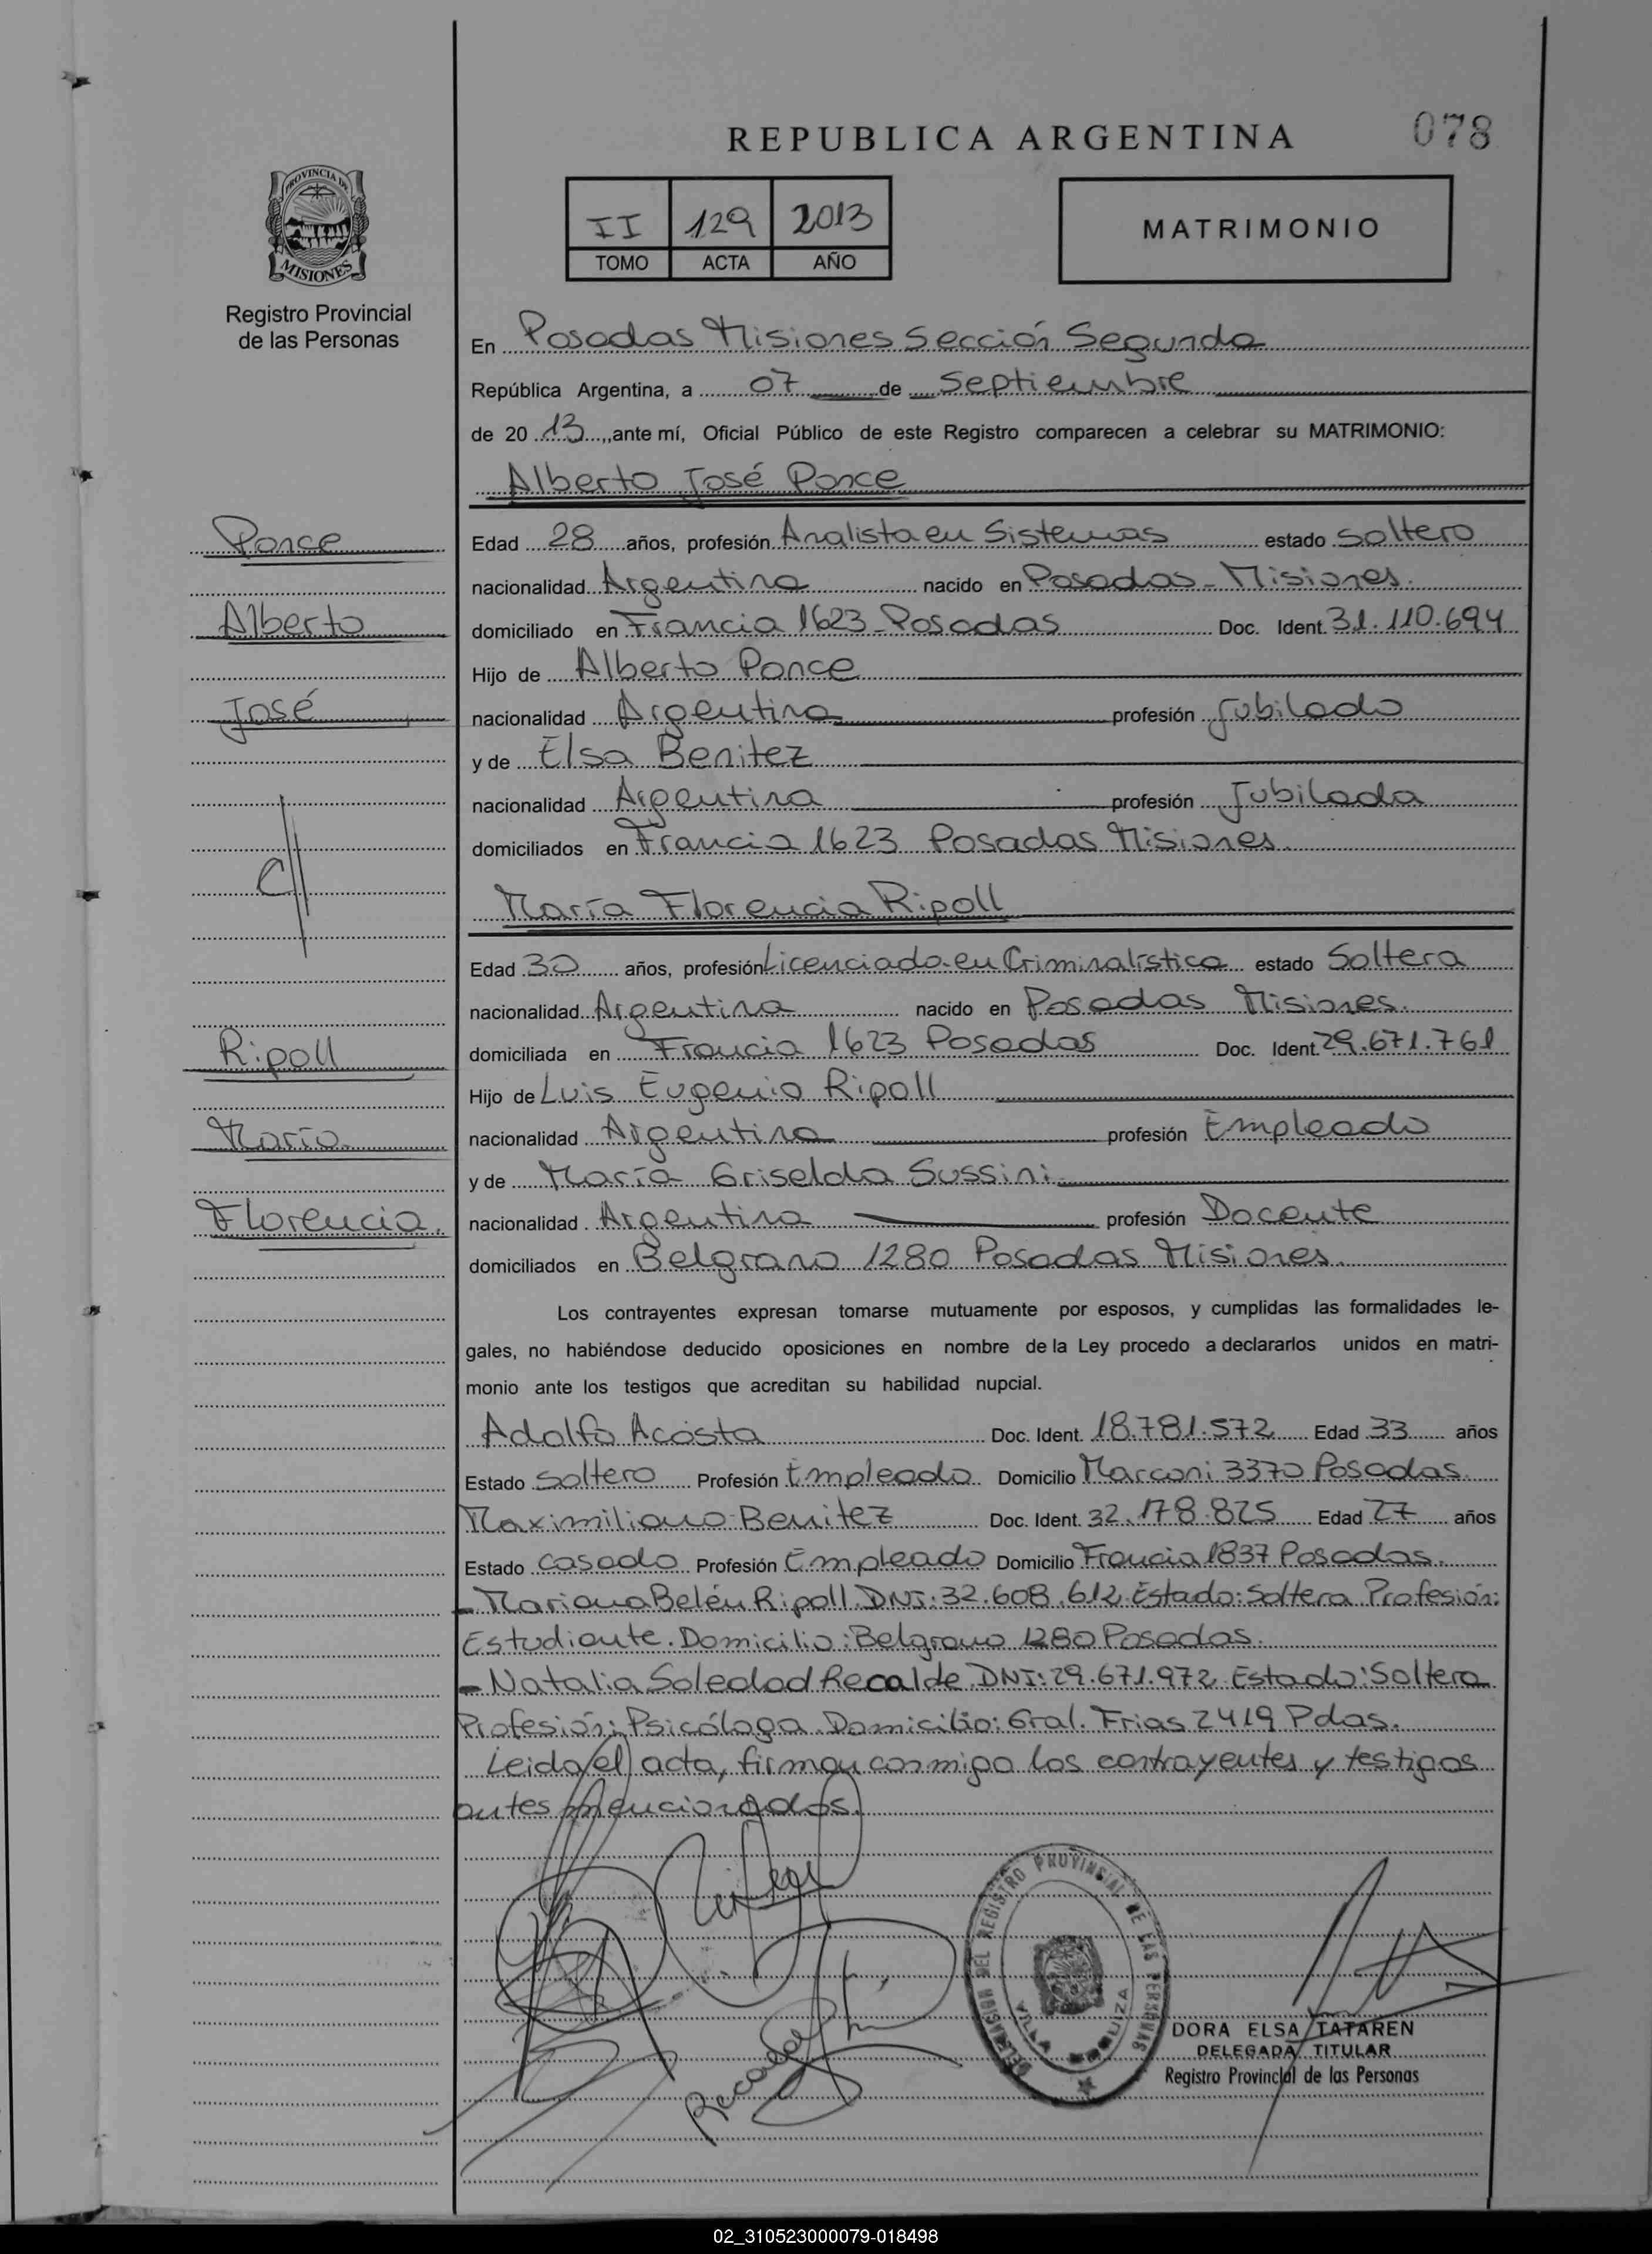 REPUBLICA ARGENTINA
078
PROVINCIA DE
MISIONES
Registro Provincial
de las Personas
II 129 2013
TOMO ACTA AÑO
MATRIMONIO
En Posadas Misiones Sección Segunda
República Argentina, a 07 de Septiembre
de 20 13, ante mí, Oficial Público de este Registro comparecen a celebrar su MATRIMONIO:
Alberto José Ponce
Ponce
Alberto
José
Edad 28 años, profesión Analista en Sistemas estado soltero
nacionalidad Argentina nacido en Posadas - Misiones.
domiciliado en Francia 1623 - Posadas Doc. Ident. 31.110.694
Hijo de Alberto Ponce
nacionalidad Argentina profesión Jubilado
y de Elsa Benitez
nacionalidad Argentina profesión Jubilada
domiciliados en Francia 1623 Posadas Misiones.
C//
María Florencia Ripoll
Ripoll
María
Florencia.
Edad 30 años, profesión Licenciada en Criminalística estado Soltera
nacionalidad Argentina nacido en Posadas Misiones.
domiciliada en Francia 1623 Posadas Doc. Ident. 29.671.761
Hijo de Luis Eugenio Ripoll
nacionalidad Argentina profesión Empleado
y de María Griselda Sussini
nacionalidad Argentina profesión Docente
domiciliados en Belgrano 1280 Posadas Misiones.
Los contrayentes expresan tomarse mutuamente por esposos, y cumplidas las formalidades le-
gales, no habiéndose deducido oposiciones en nombre de la Ley procedo a declararlos unidos en matri-
monio ante los testigos que acreditan su habilidad nupcial.
Adolfo Acosta Doc. Ident. 18.781.572 Edad 33 años
Estado Soltero Profesión Empleado Domicilio Marconi 3370 Posadas
Maximiliano Benitez Doc. Ident. 32.178.825 Edad 27 años
Estado casado Profesión Empleado Domicilio Francia 1837 Posadas.
- Mariana Belén Ripoll. DNI: 32.608.612 Estado: Soltera Profesión:
Estudiante. Domicilio: Belgrano 1280 Posadas.
- Natalia Soledad Recalde DNI: 29.671.972 Estado: Soltera
Profesión: Psicóloga. Domicilio: Gral. Frias 2419 Pdas.
Leida el acta, firman conmigo los contrayentes y testigos
antes mencionados.
Recalde
DELEGACION DEL REGISTRO PROVINCIAL DE LAS PERSONAS
VILLA
DORA ELSA TATAREN
DELEGADA TITULAR
Registro Provincial de las Personas
02_310523000079-018498